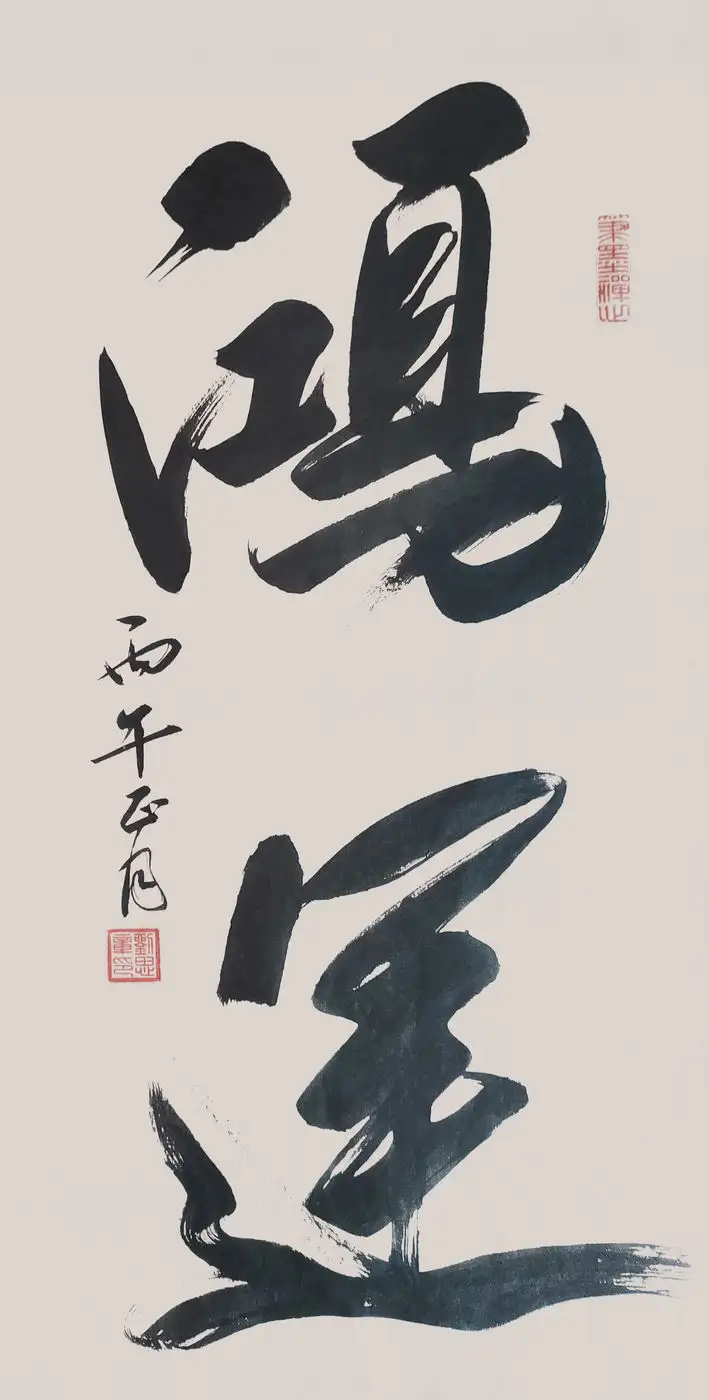 鴻運
丙午正月